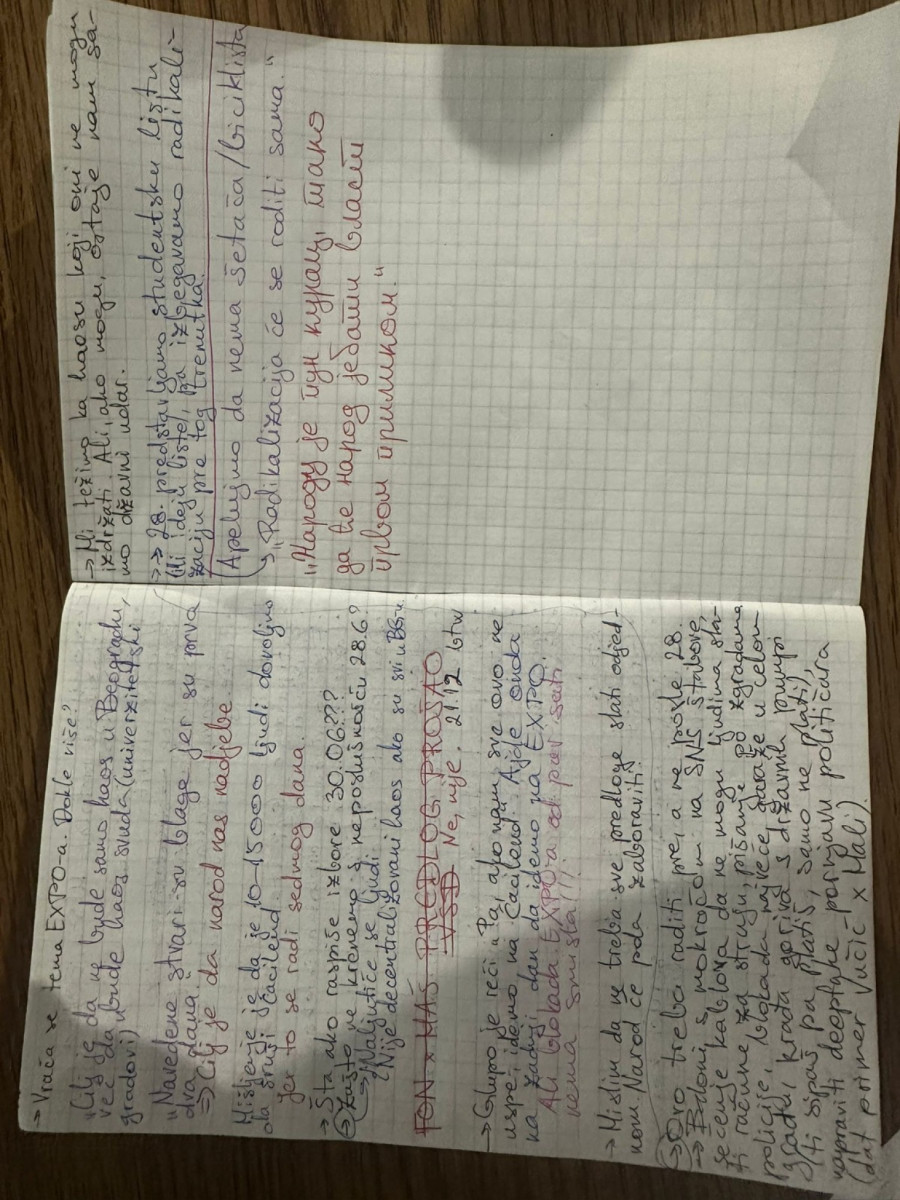 → Vraća se tema EXPO-a. Dokle više?
"Cilj je da ne bude samo haos u Beogradu,
već da bude haos svuda (univerzitetski
gradovi)
"Navedene stvari su blage jer su prva
dva dana."
⇒ Cilj je da narod nas nadjebe
Mišljenje je da je 10-15000 ljudi dovoljno
da sruši Ćacilend.
jer to se radi sedmog dana.
→ Šta ako raspiše izbore 30.06???
→ Zašto ne krenemo s neposlušnošću 28.6?
⇒ Naljutiće se ljudi
(Nije decentralizovani haos ako su svi u BG-u.
FON x MAŠ PREDLOG PROŠAO
VSD Ne, nije. 21:12 btw
→ Glupo je reći "Pa, ako nam sve ovo ne
uspe, idemo na Ćacilend". Ajde onda
na zadnji dan da idemo na EXPO.
Ali blokada EXPO-a od par sati
nema smisla!!!
→ Mislim da ne treba sve predloge slati odjed-
nom. Narod će pola zaboraviti.
→ Ovo treba raditi pre, a ne posle 28.
→ Baloni s mokraćom na SNS štabove,
sečenje kablova da ne mogu ljudima sla-
ti račune za struju, pišanje po zgradama
policije, blokada najveće garaže u celom
gradu, krađa goriva s državnih pumpi
(ti sipaš pa platiš, samo ne platiš),
napraviti deepfake pornjavu političara
(dat primer Vučić x Mali).
→ Mi težimo ka haosu koji oni ne mogu
izdržati. Ali, ako mogu, ostaje nam sa-
mo državni udar.
→→ 28. predstavljamo studentsku listu
(ili ideju liste), pa izbegavamo radikali-
zaciju pre tog trenutka.
(Apelujmo da nema šetača/biciklista
"Radikalizacija će se roditi sama."
"Народу је пун курац, тако
да ће народ јебати власт
првом приликом."